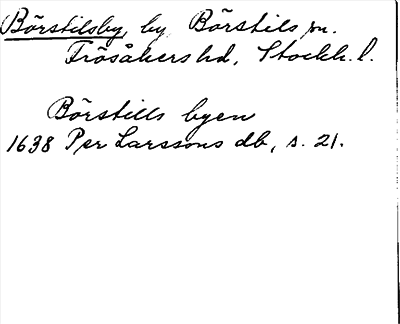 Börstilsby, by Börstils sn.
Frösåkers hd, Stockh. l.
Börstills byen
1638 Per Larssons db, s. 21.